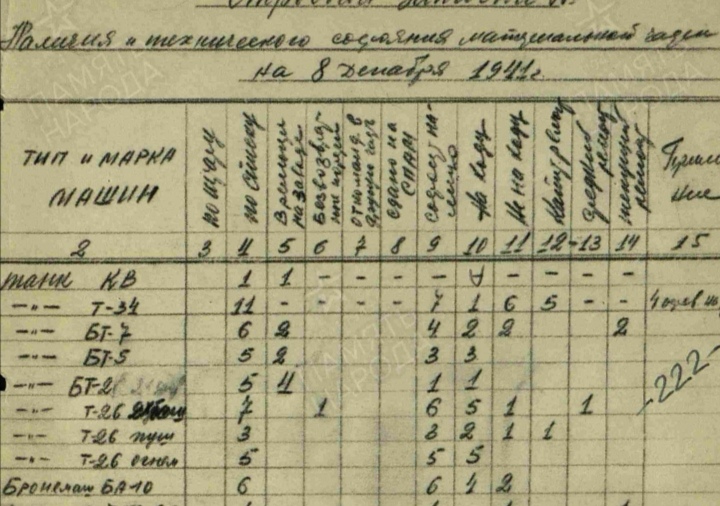 Наличия и технического состояния материальной части
на 8 Декабря 1941г.
ТИП и МАРКА МАШИН по штату по списку Времен. на заводе Безвозвр. откоманд. в другие сдано на СПАМ состоит налицо На ходу Не на ходу средний ремонт текущий ремонт
2 3 4 5 6 7 8 9 10 11 12 13 14 15
танк КВ 1 1 - - - - - - - - -
-"- Т-34 11 - - - - 7 1 6 5 - -
-"- БТ-7 6 2 4 2 2 2
-"- БТ-5 5 2 3 3
-222-
-"- БТ-2 5 4 1 1
-"- Т-26 7 1 6 5 1 1
-"- Т-26 пуш 3 3 2 1 1
-"- Т-26 огнем 5 5 5
Бронемаш БА-10 6 6 4 2
ПАМЯТЬ НАРОДА